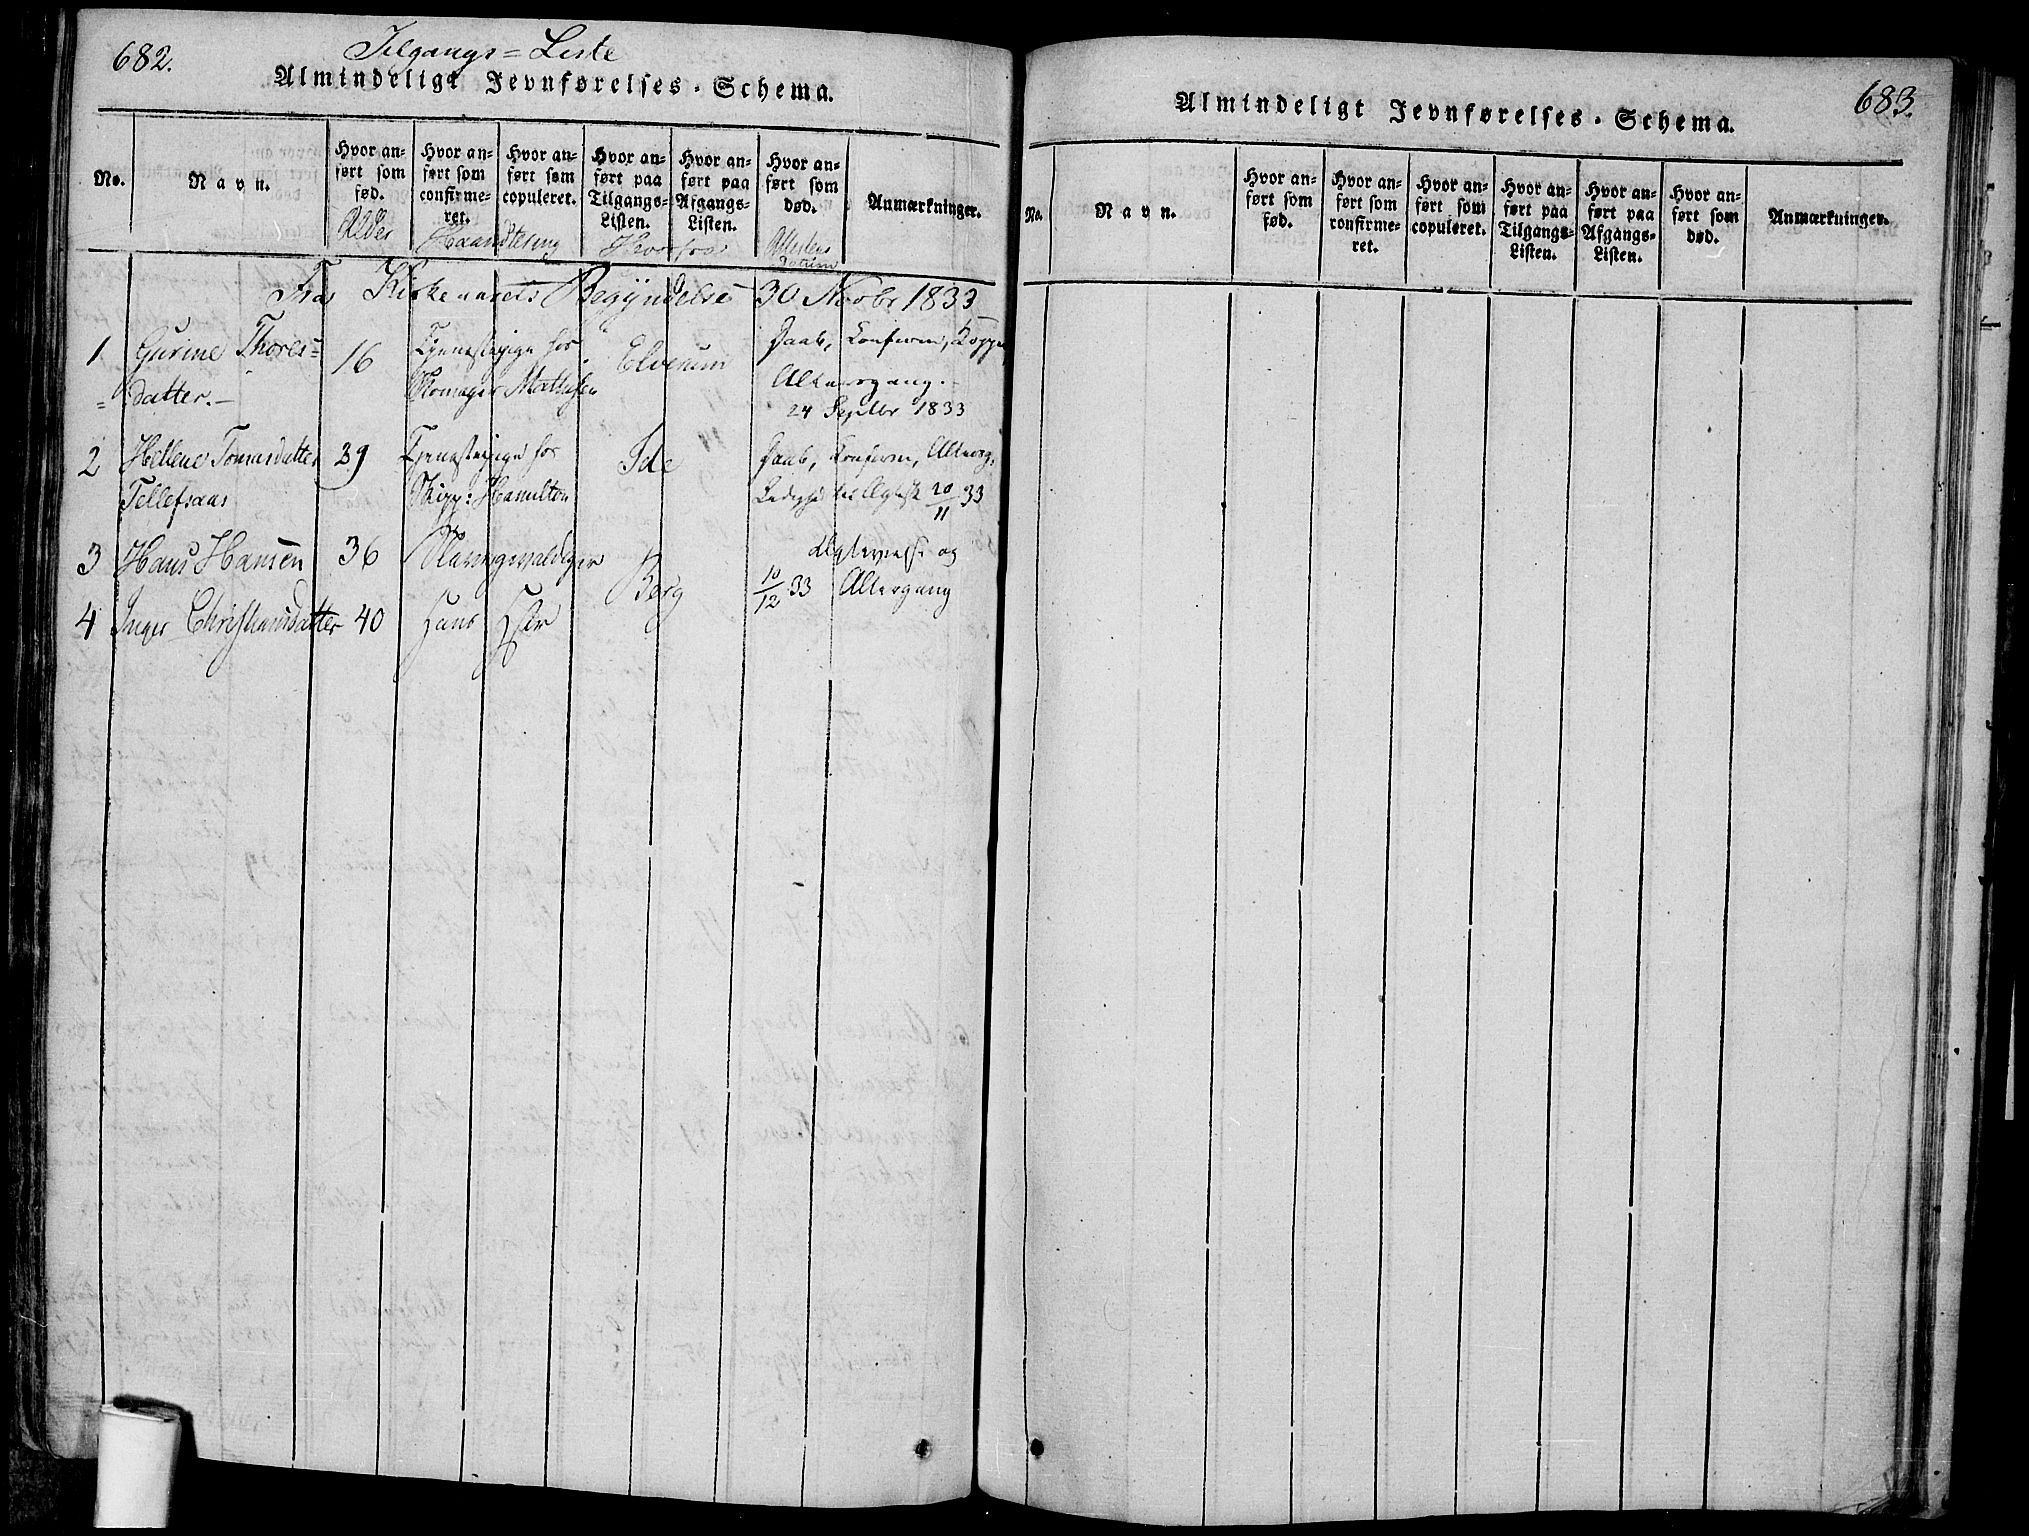 682.
Tilgangs = Liste
Almindeligt Jevnførelses-Schema.
No.
Navn.
Hvor anført som fød.
Hvor anført som confirmeret.
Hvor anført som copuleret.
Hvor anført paa Tilgangs-Listen.
Hvor anført paa Afgangs-Listen.
Hvor anført som død.
Anmærkninger.
Alder
Haandtering
Hvorfra
Attestens Datum
Fra Kirkeaarets Begyndelse 30 Novbr 1833
1 Gurine Thores= 16 Tjenestepige hos Elverum Daab, Confirm, Kopper
= datter.- Skomager Mathesen Altergang.-
24 Septbr 1833
2 Hellene Tomasdatter 29 Tjenestepige hos Ide Daab, Confirm, Alterg,
Tellefsaas Skipp: Hamilton til Ægtesk 20/11 33
3 Hans Hansen 36 Berg 10/12 33 og Altergang
4 Inger Christiansdatter 40 Hans
683.
Almindeligt Jevnførelses-Schema.
No.
Navn.
Hvor anført som fød.
Hvor anført som confirmeret.
Hvor anført som copuleret.
Hvor anført paa Tilgangs-Listen.
Hvor anført paa Afgangs-Listen.
Hvor anført som død.
Anmærkninger.